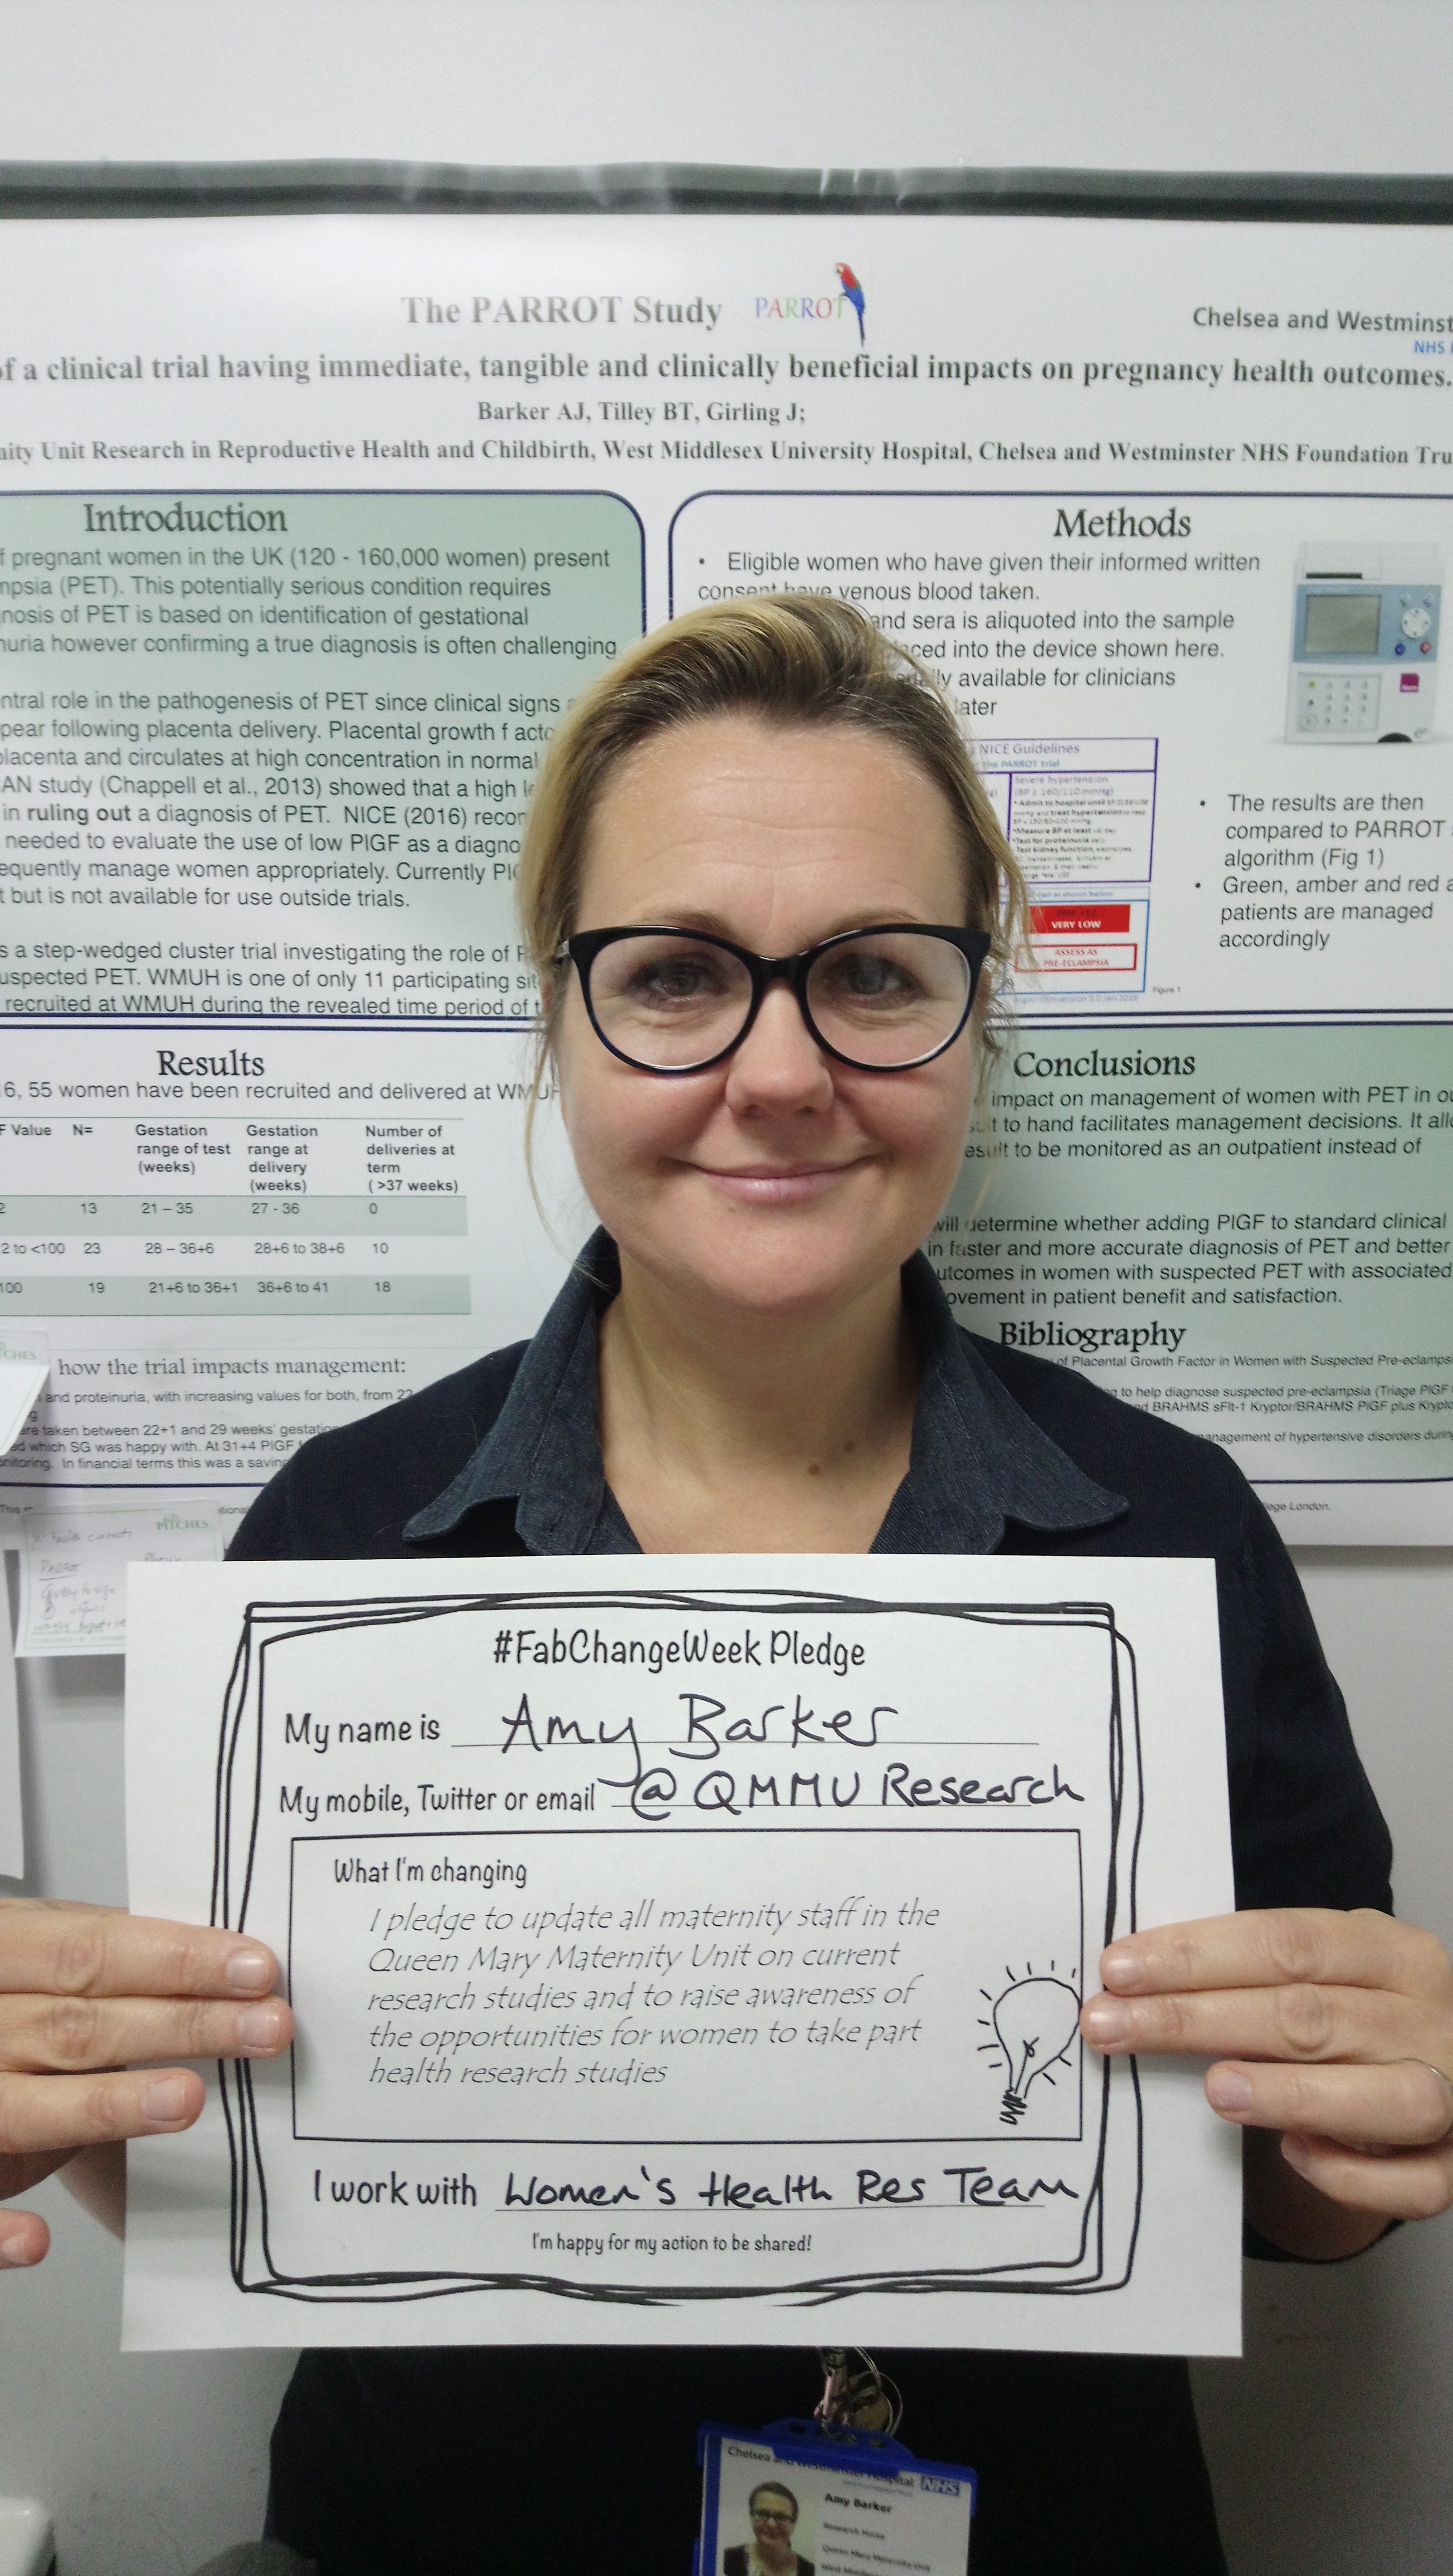 The PARROT Study
PARROT
Chelsea and Westminst
NHS
of a clinical trial having immediate, tangible and clinically beneficial impacts on pregnancy health outcomes.
Barker AJ, Tilley BT, Girling J;
nity Unit Research in Reproductive Health and Childbirth, West Middlesex University Hospital, Chelsea and Westminster NHS Foundation Tru
Introduction
f pregnant women in the UK (120 - 160,000 women) present
mpsia (PET). This potentially serious condition requires
nosis of PET is based on identification of gestational
nuria however confirming a true diagnosis is often challenging
ntral role in the pathogenesis of PET since clinical signs
pear following placenta delivery. Placental growth f acto
placenta and circulates at high concentration in normal
AN study (Chappell et al., 2013) showed that a high
in ruling out a diagnosis of PET. NICE (2016) recor
needed to evaluate the use of low PlGF as a diagno
equently manage women appropriately. Currently
t but is not available for use outside trials.
s a step-wedged cluster trial investigating the role of
uspected PET. WMUH is one of only 11 participating sit
recruited at WMUH during the revealed time period of t
Methods
• Eligible women who have given their informed written
consent have venous blood taken.
and sera is aliquoted into the sample
ced into the device shown here.
available for clinicians
later
NICE Guidelines
the PARROT trial
Severe hypertension
(BP ≥ 160/110 mmHg)
VERY LOW
ASSESS AS
PRE-ECLAMPSIA
Figure 1
• The results are then
compared to PARROT
algorithm (Fig 1)
• Green, amber and red a
patients are managed
accordingly
Results
16, 55 women have been recruited and delivered at WMUH
F Value N= Gestation range of test (weeks) Gestation range at delivery (weeks) Number of deliveries at term ( >37 weeks)
2 13 21 – 35 27 - 36 0
2 to <100 23 28 – 36+6 28+6 to 38+6 10
100 19 21+6 to 36+1 36+6 to 41 18
how the trial impacts management:
and proteinuria, with increasing values for both, from 22
ere taken between 22+1 and 29 weeks' gestatio
ed which SG was happy with. At 31+4 PlGF
onitoring. In financial terms this was a saving
Conclusions
impact on management of women with PET in ou
t to hand facilitates management decisions. It allo
esult to be monitored as an outpatient instead of
will determine whether adding PlGF to standard clinical
in faster and more accurate diagnosis of PET and better
utcomes in women with suspected PET with associated
ovement in patient benefit and satisfaction.
Bibliography
of Placental Growth Factor in Women with Suspected Pre-eclampsi
to help diagnose suspected pre-eclampsia (Triage PlGF
BRAHMS sFlt-1 Kryptor/BRAHMS PlGF plus Krypto
management of hypertensive disorders during
lege London.
PITCHES
#FabChangeWeek Pledge
My name is Amy Barker
My mobile, Twitter or email @QMMU Research
What I'm changing
I pledge to update all maternity staff in the
Queen Mary Maternity Unit on current
research studies and to raise awareness of
the opportunities for women to take part
health research studies
I work with Women's Health Res Team
I'm happy for my action to be shared!
Chelsea and Westminster Hospital NHS
Amy Barker
Research Nurse
Queen Mary Maternity Unit